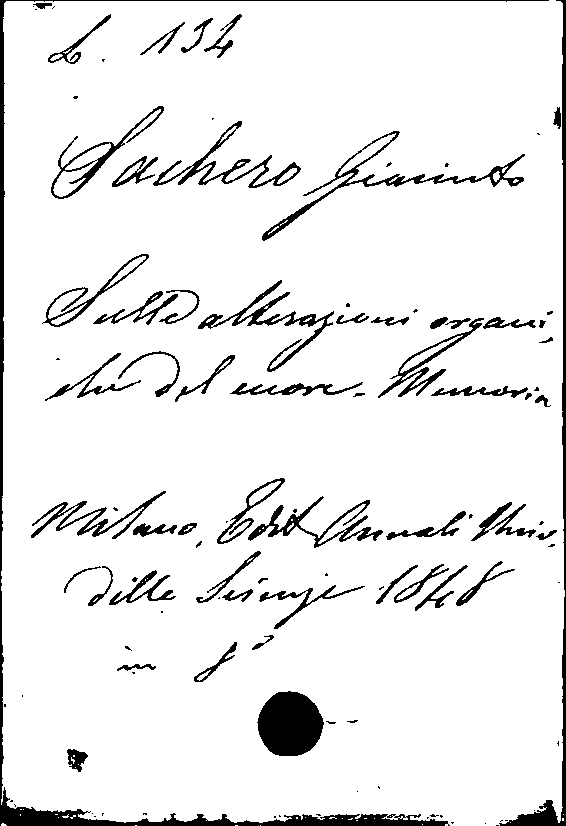 L. 134
Sachero Giacinto
Sulle alterazioni organi,
che del cuore - Memoria
Milano, Edit Annali Univ.
delle Scienze 1848
in 8°